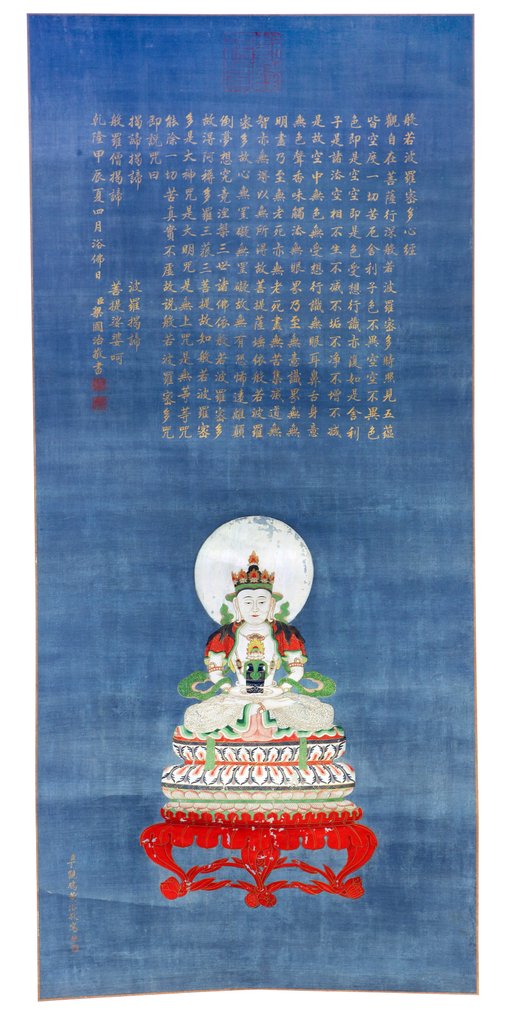 般若波羅蜜多心經
觀自在菩薩行深般若波羅蜜多時照見五蘊
皆空度一切苦厄舍利子色不異空空不異色
色即是空空即是色受想行識亦復如是舍利
子是諸法空相不生不滅不垢不淨不增不減
是故空中無色無受想行識無眼耳鼻舌身意
無色聲香味觸法無眼界乃至無意識界無無
明盡乃至無老死亦無老死盡無苦集滅道無
智亦無得以無所得故菩提薩埵依般若波羅
蜜多故心無罣礙無罣礙故無有恐怖遠離顛
倒夢想究竟涅槃三世諸佛依般若波羅蜜多
故得阿耨多羅三藐三菩提故知般若波羅蜜
多是大神咒是大明咒是無上咒是無等等咒
能除一切苦真實不虛故說般若波羅蜜多咒
即說咒曰
揭諦揭諦 波羅揭諦
般羅僧揭諦 菩提薩婆呵
乾隆甲辰夏四月浴佛日
臣梁國治敬書